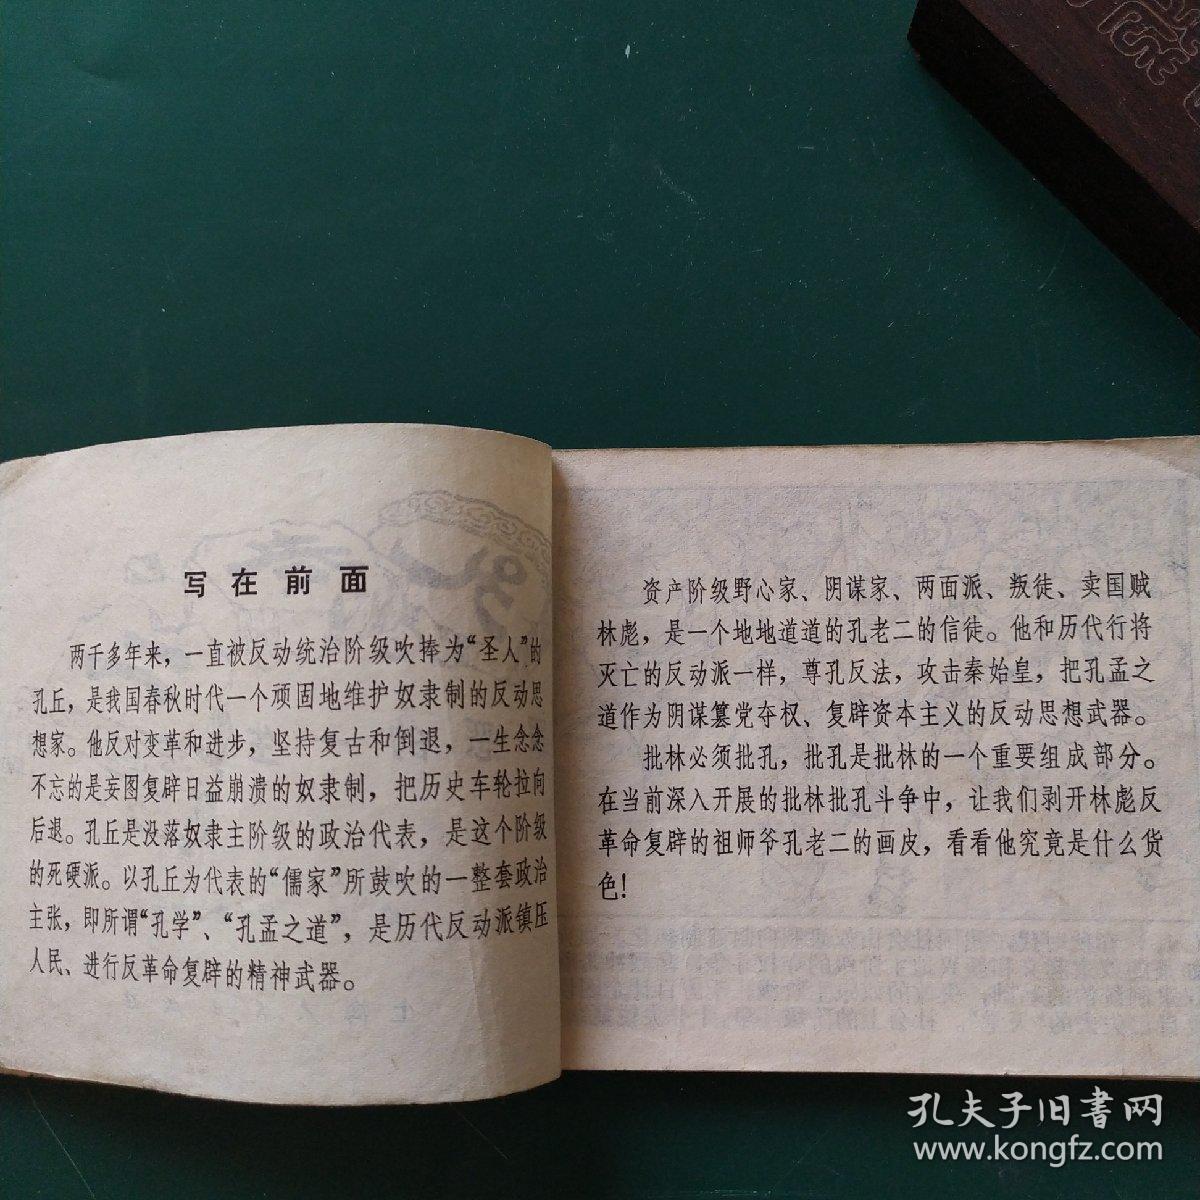 写在前面
两千多年来，一直被反动统治阶级吹捧为“圣人”的
孔丘，是我国春秋时代一个顽固地维护奴隶制的反动思
想家。他反对变革和进步，坚持复古和倒退，一生念念
不忘的是妄图复辟日益崩溃的奴隶制，把历史车轮拉向
后退。孔丘是没落奴隶主阶级的政治代表，是这个阶级
的死硬派。以孔丘为代表的“儒家”所鼓吹的一整套政治
主张，即所谓“孔学”、“孔孟之道”，是历代反动派镇压
人民、进行反革命复辟的精神武器。
资产阶级野心家、阴谋家、两面派、叛徒、卖国贼
林彪，是一个地地道道的孔老二的信徒。他和历代行将
灭亡的反动派一样，尊孔反法，攻击秦始皇，把孔孟之
道作为阴谋篡党夺权、复辟资本主义的反动思想武器。
批林必须批孔，批孔是批林的一个重要组成部分。
在当前深入开展的批林批孔斗争中，让我们剥开林彪反
革命复辟的祖师爷孔老二的画皮，看看他究竟是什么货
色！
孔夫子旧书网
www.kongfz.com